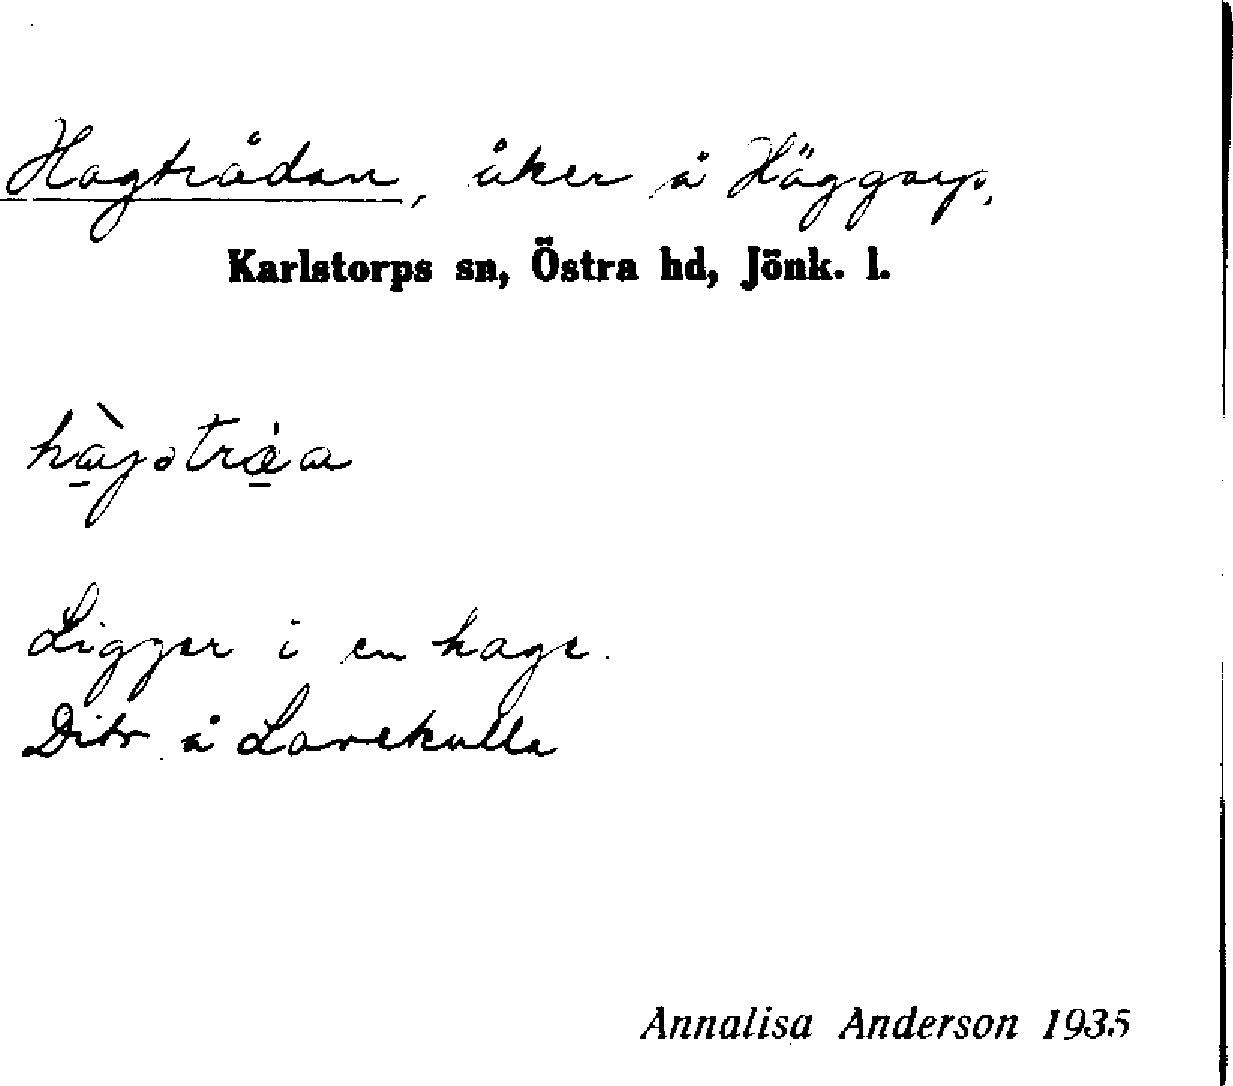 Hagträdan, åker å Häggarp,
Karlstorps sn, Östra hd, Jönk. l.
Ligger i en hage.
Dito å Lovekulla
Annalisa Anderson 1935